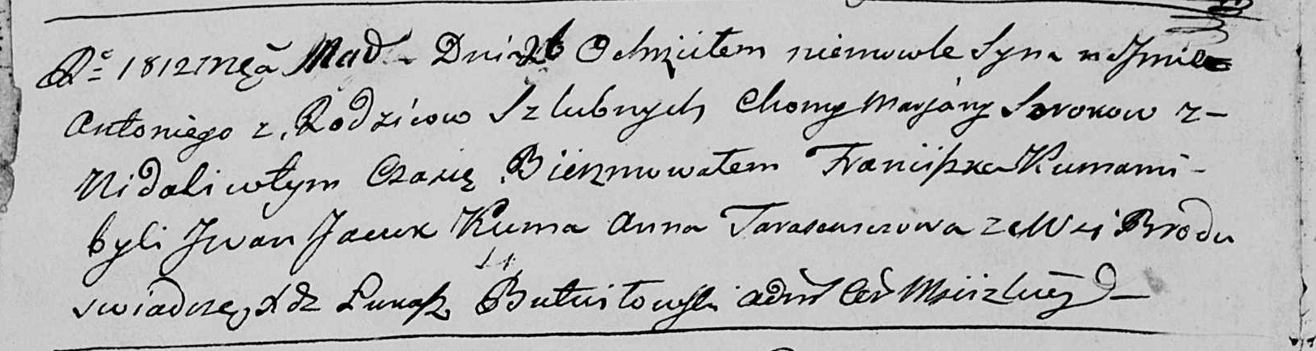 Rº 1812 mca Mad Dnia 26 Ochrzciłem niemowle Syna w Jmie
Antoniego z Rodzicow Szlubnych Chomy Marjany Sorokow z
Nidali wtym Czasię Bierzmowałem Franciszka Kumami
byli Jwan Jacuk Kuma Anna Tarasewiczowa ze Wsi Brodu
swiadczę Xdz Łukasz